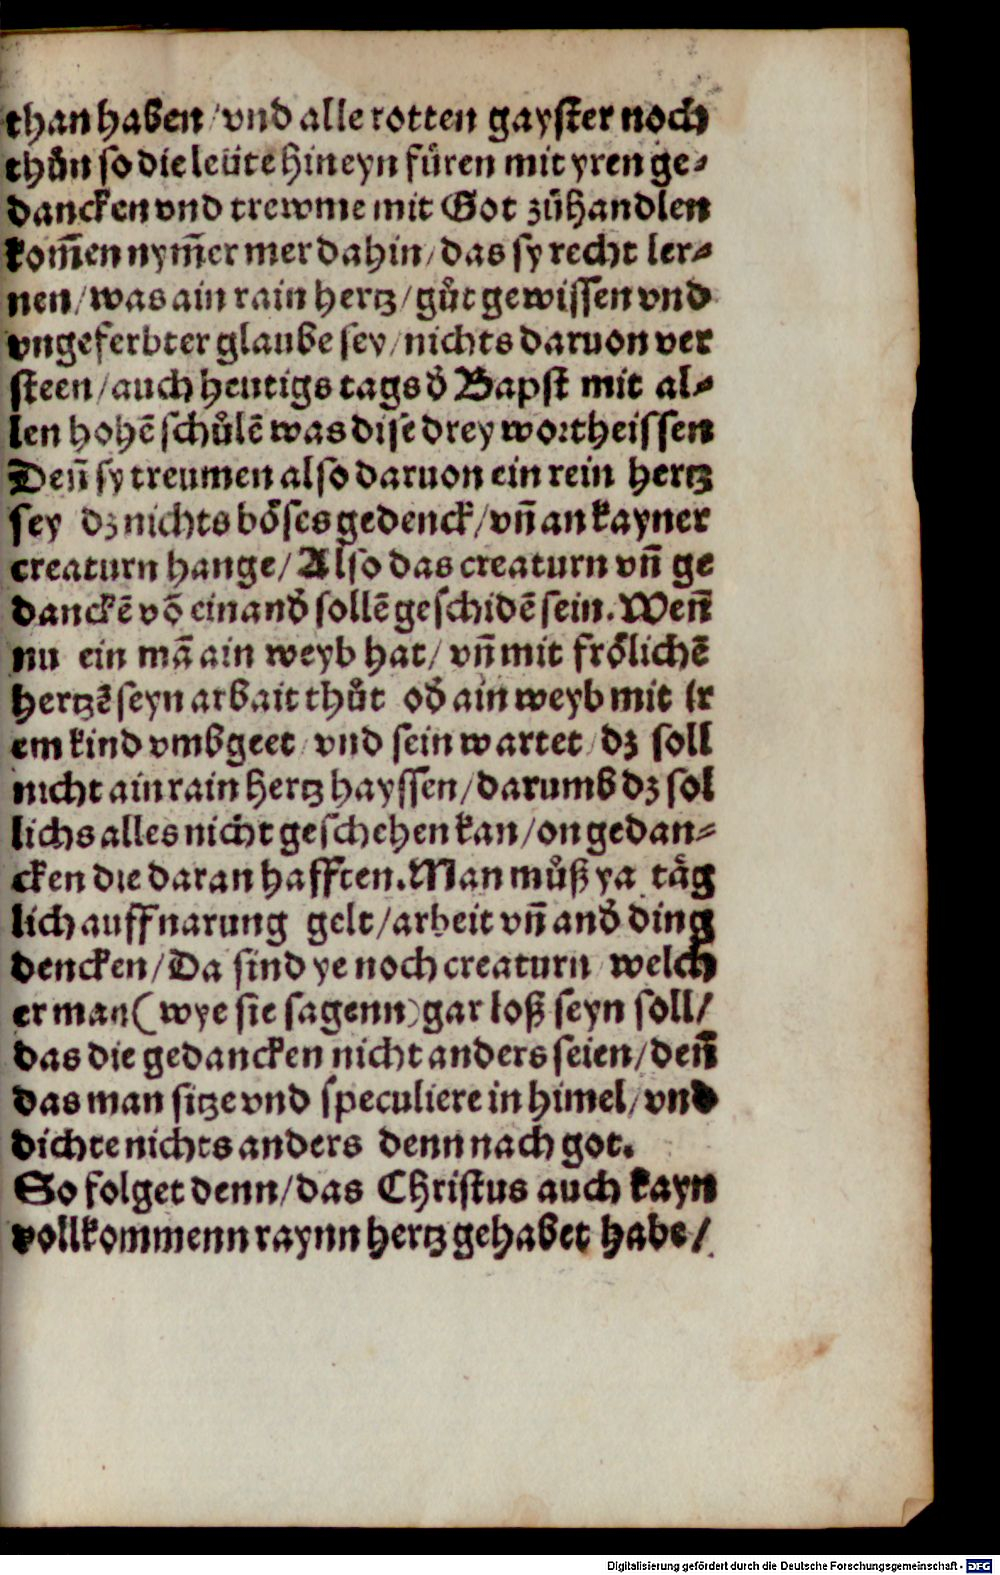 than haben/vnd alle rotten gayster noch
thůn so die leüte hineyn füren mit yren ge-
dancken vnd trewme mit Got zůhandlen
kom̃en nym̃er mer dahin/das sy recht ler-
nen/was ain rain hertz/gůt gewissen vnd
vngeferbter glaube sey/nichts daruon ver
steen/auch heutigs tags d̕ Bapst mit al-
len hohẽ schůlẽ was dise drey wort heissen
Deñ sy treumen also daruon ein rein hertz
sey dz nichts böses gedenck/vñ an kayner
creaturn hange/Also das creaturn vñ ge
danckẽ võ einand̕ sollẽ geschidẽ sein. Weñ
nu ein mã ain weyb hat/vñ mit frölichẽ
hertzẽ seyn arbait thůt od̕ ain weyb mit ir
em kind vmbgeet/vnd sein wartet/dz soll
nicht ain rain hertz hayssen/darumb dz sol
lichs alles nicht geschehen kan/on gedan-
cken die daran hafften. Man můß ya täg
lich auff narung gelt/arbeit vñ and̕ ding
dencken/Da sind ye noch creaturn welch
er man (wye sie sagenn) gar loß seyn soll/
das die gedancken nicht anders seien/deñ
das man sitze vnd speculiere in himel/vnd
dichte nichts anders denn nach got.
So folget denn/das Christus auch kayn
vollkommenn raynn hertz gehabet habe/
Digitalisierung gefördert durch die Deutsche Forschungsgemeinschaft - DFG